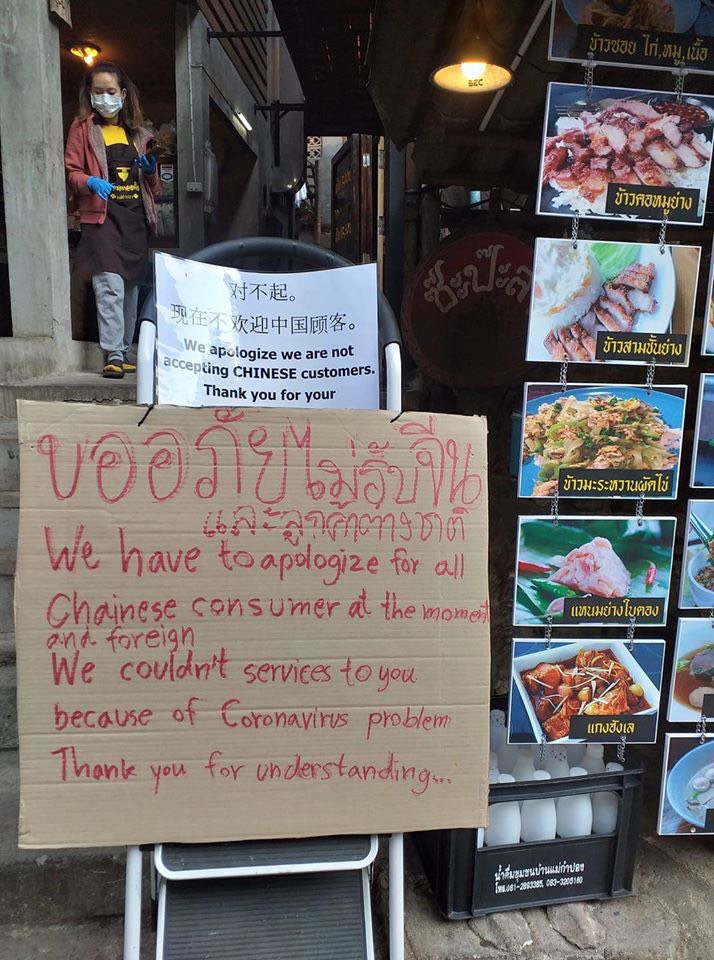 对不起。
现在不欢迎中国顾客。
We apologize we are not
accepting CHINESE customers.
Thank you for your
ขออภัยไม่รับจีน
และลูกค้าต่างชาติ
We have to apologize for all
Chainese consumer at the moment
and foreign
We couldn't services to you
because of Coronavirus problem
Thank you for understanding...
BEC
ข้าวซอย ไก่,หมู,เนื้อ
ข้าวคอหมูย่าง
ข้าวสามชั้นย่าง
ข้าวมะระหวานผัดไข่
แหนมย่างใบตอง
แกงฮังเล
น้ำดื่มชุมชนบ้านแม่กำปอง
โทร.081-2893385, 083-3205160